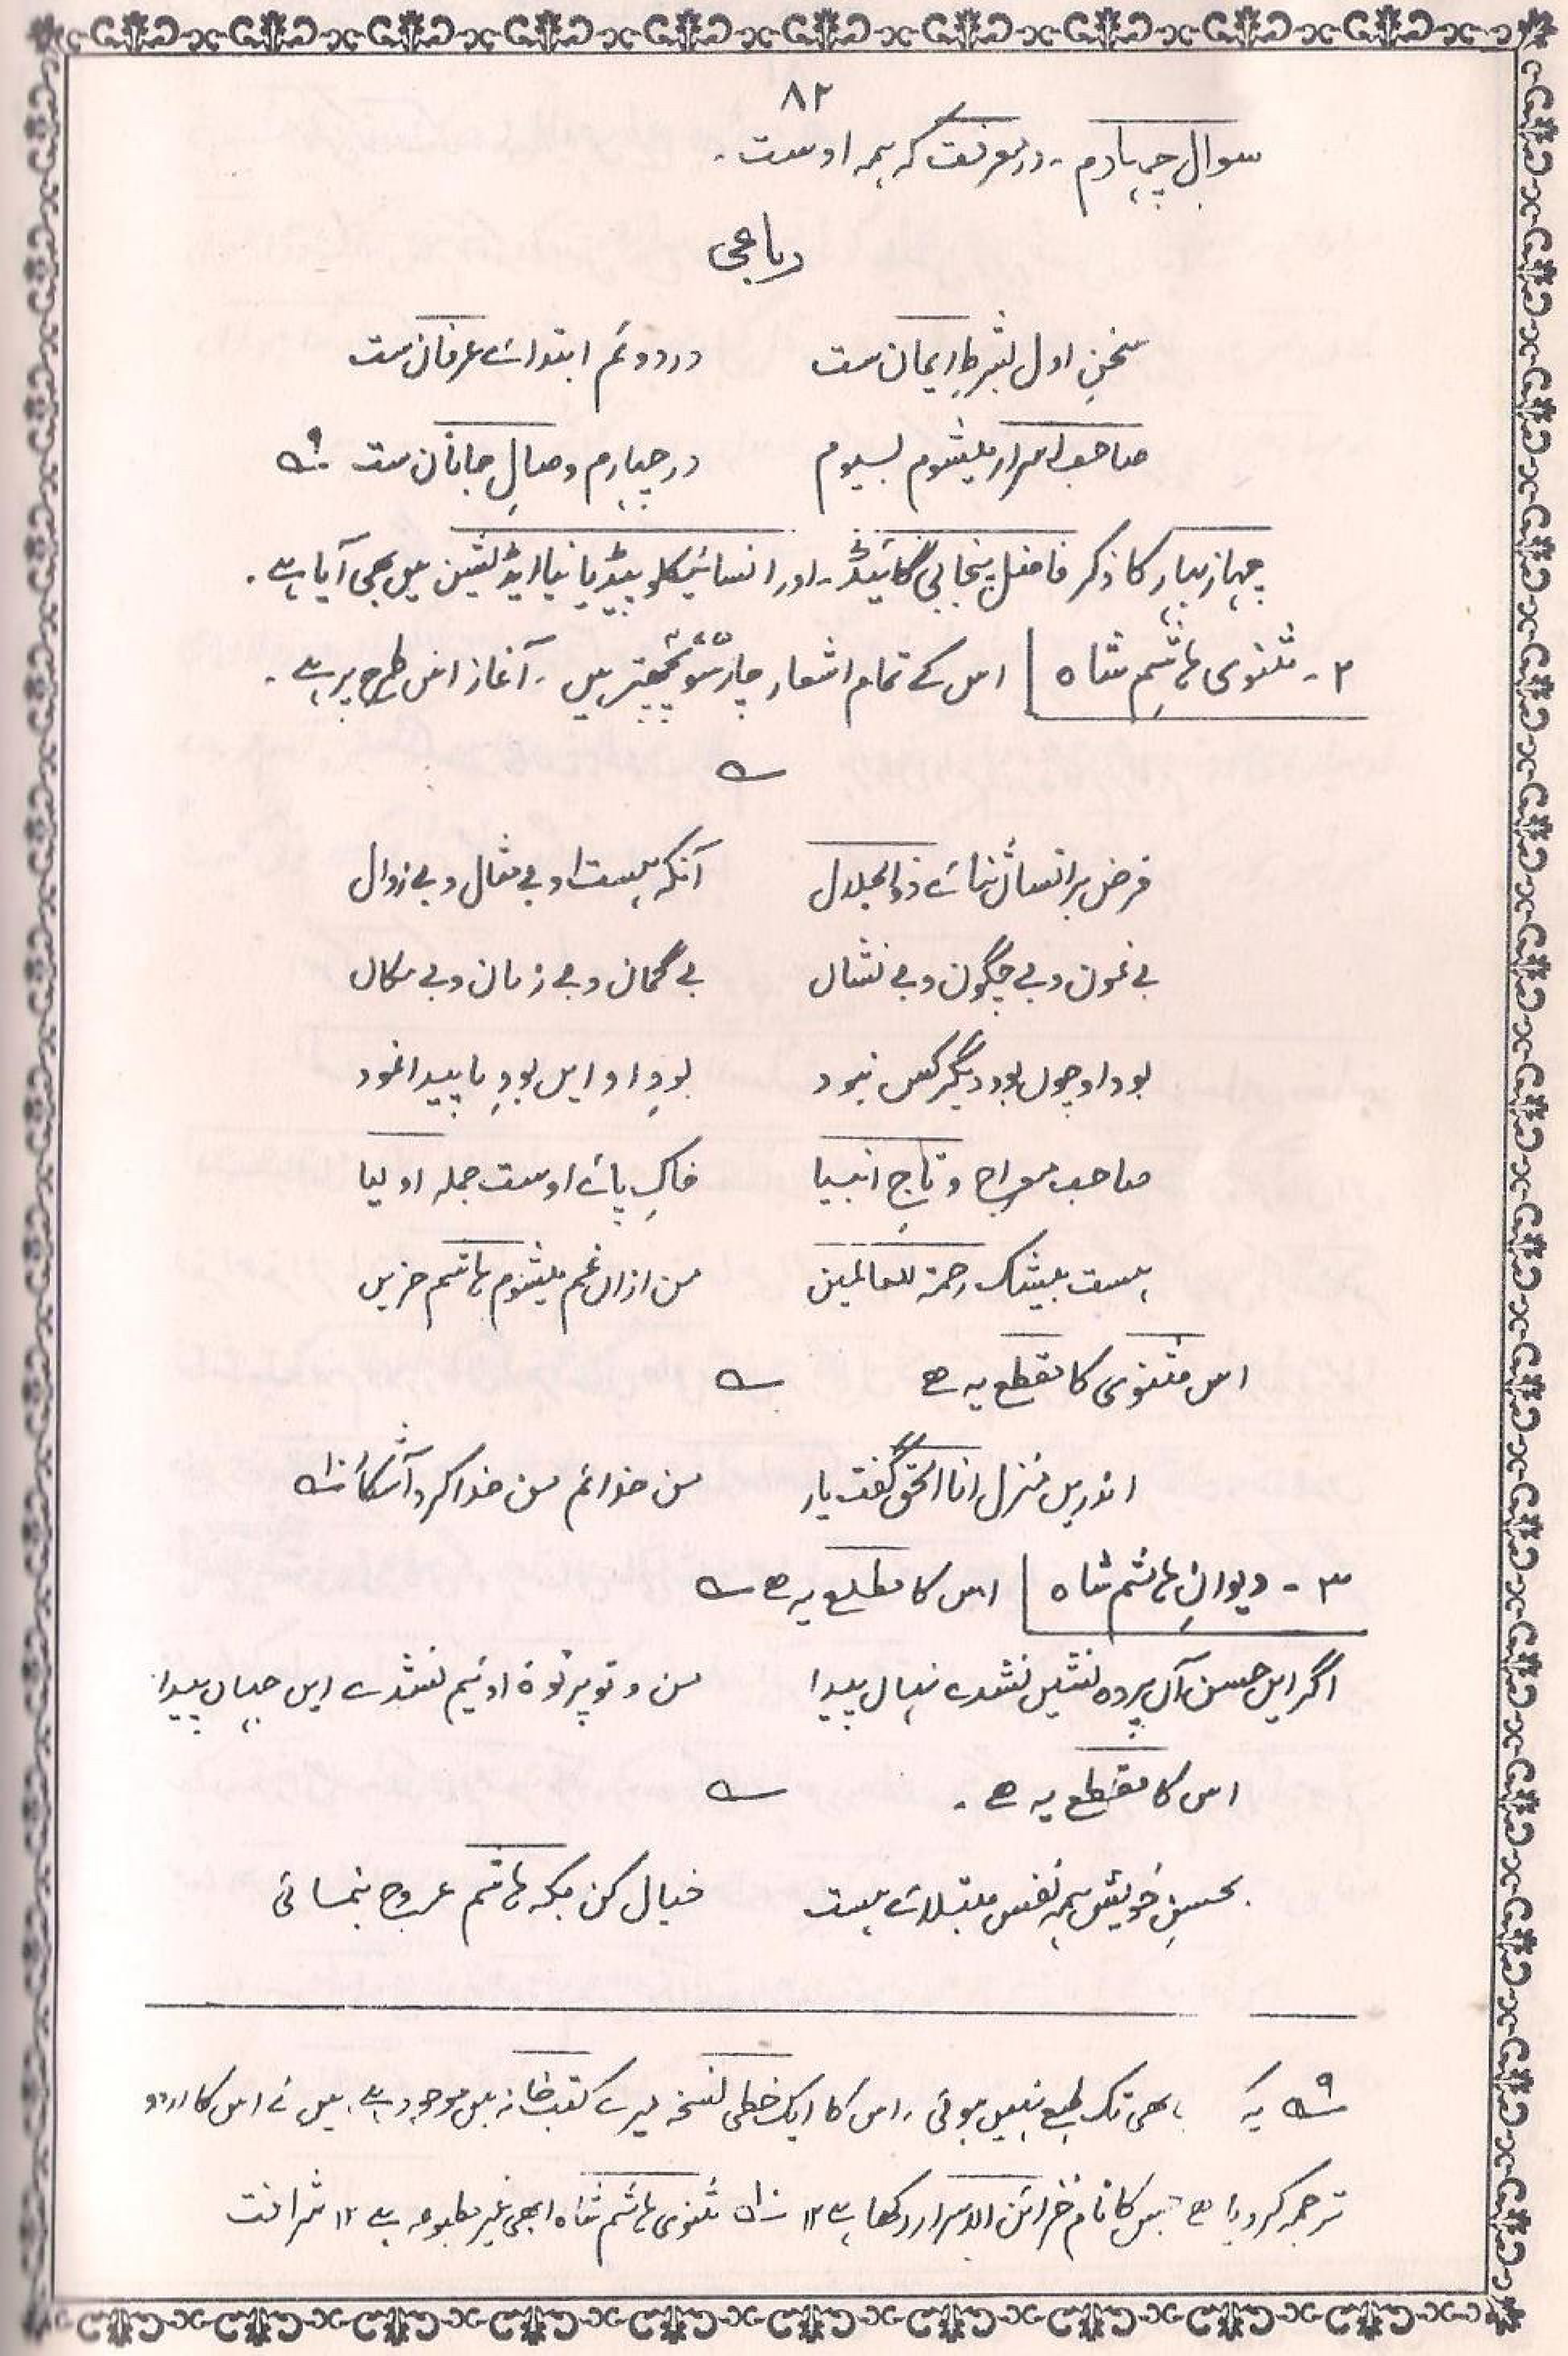 ۸۲
سوال چہارم ۔ در معرفت کہ ہمہ اوست ۔
رباعی
سخنِ اول بشرطِ ایمان ست در دوئم ابتدائے عرفان ست
صاحبِ اسرار میشوم بسیوم در چہارم وصالِ جانان ست ۹؎
چہار بہار کا ذکر فاضل پنجابی گائیڈ ۔ اور انسائیکلوپیڈیا نیا ایڈیشن میں بھی آیا ہے ۔
۲ ۔ مثنوی ہاشم شاہ اس کے تمام اشعار چار سَو پچھتر ۴۷۵ ہیں ۔ آغاز اس طرح پر ہے ۔
؎
فرض بر انساں ثنائے ذوالجلال آنکہ ہست او بے مثال و بے زوال
بے نمون و بے چگون و بے نشاں بے گمان و بے زمان و بے مکاں
بود او چوں بود دیگر کس نبود بودِ او ایں بودِ ما پیدا نمود
صاحبِ معراج و تاجِ انبیا خاکِ پائے اوست جملہ اولیا
ہست بیشک رحمۃ للعالمین من ازاں غم میشوم ہاشم حزیں
اس مثنوی کا مقطع یہ ہے ؎
اندریں منزل انا الحق گفت یار من خدائم من خدا کرد آشکار ۱۰؎
۳ ۔ دیوانِ ہاشم شاہ اس کا مطلع یہ ہے ؎
اگر ایں حسن آں پردہ نشیں نشدے نہاں پیدا من و تو پرتوۂ اوئیم نشدے ایں جہاں پیدا
اس کا مقطع یہ ہے ۔ ؎
بحسنِ خویش ہمہ نفس مبتلائے ہست خیال کن بکہ ہاشم عروج بنمائی
۹؎ یہ ابھی تک طبع نہیں ہوئی ۔ اس کا ایک خطی نسخہ میرے کتب خانہ میں موجود ہے ۔ میں نے اس کا اردو
ترجمہ کر دیا ہے جس کا نام خزائن الاسرار رکھا ہے ۱۲ ۱۰؎ مثنوی ہاشم شاہ ابھی غیر مطبوعہ ہے ۱۲ شرافت